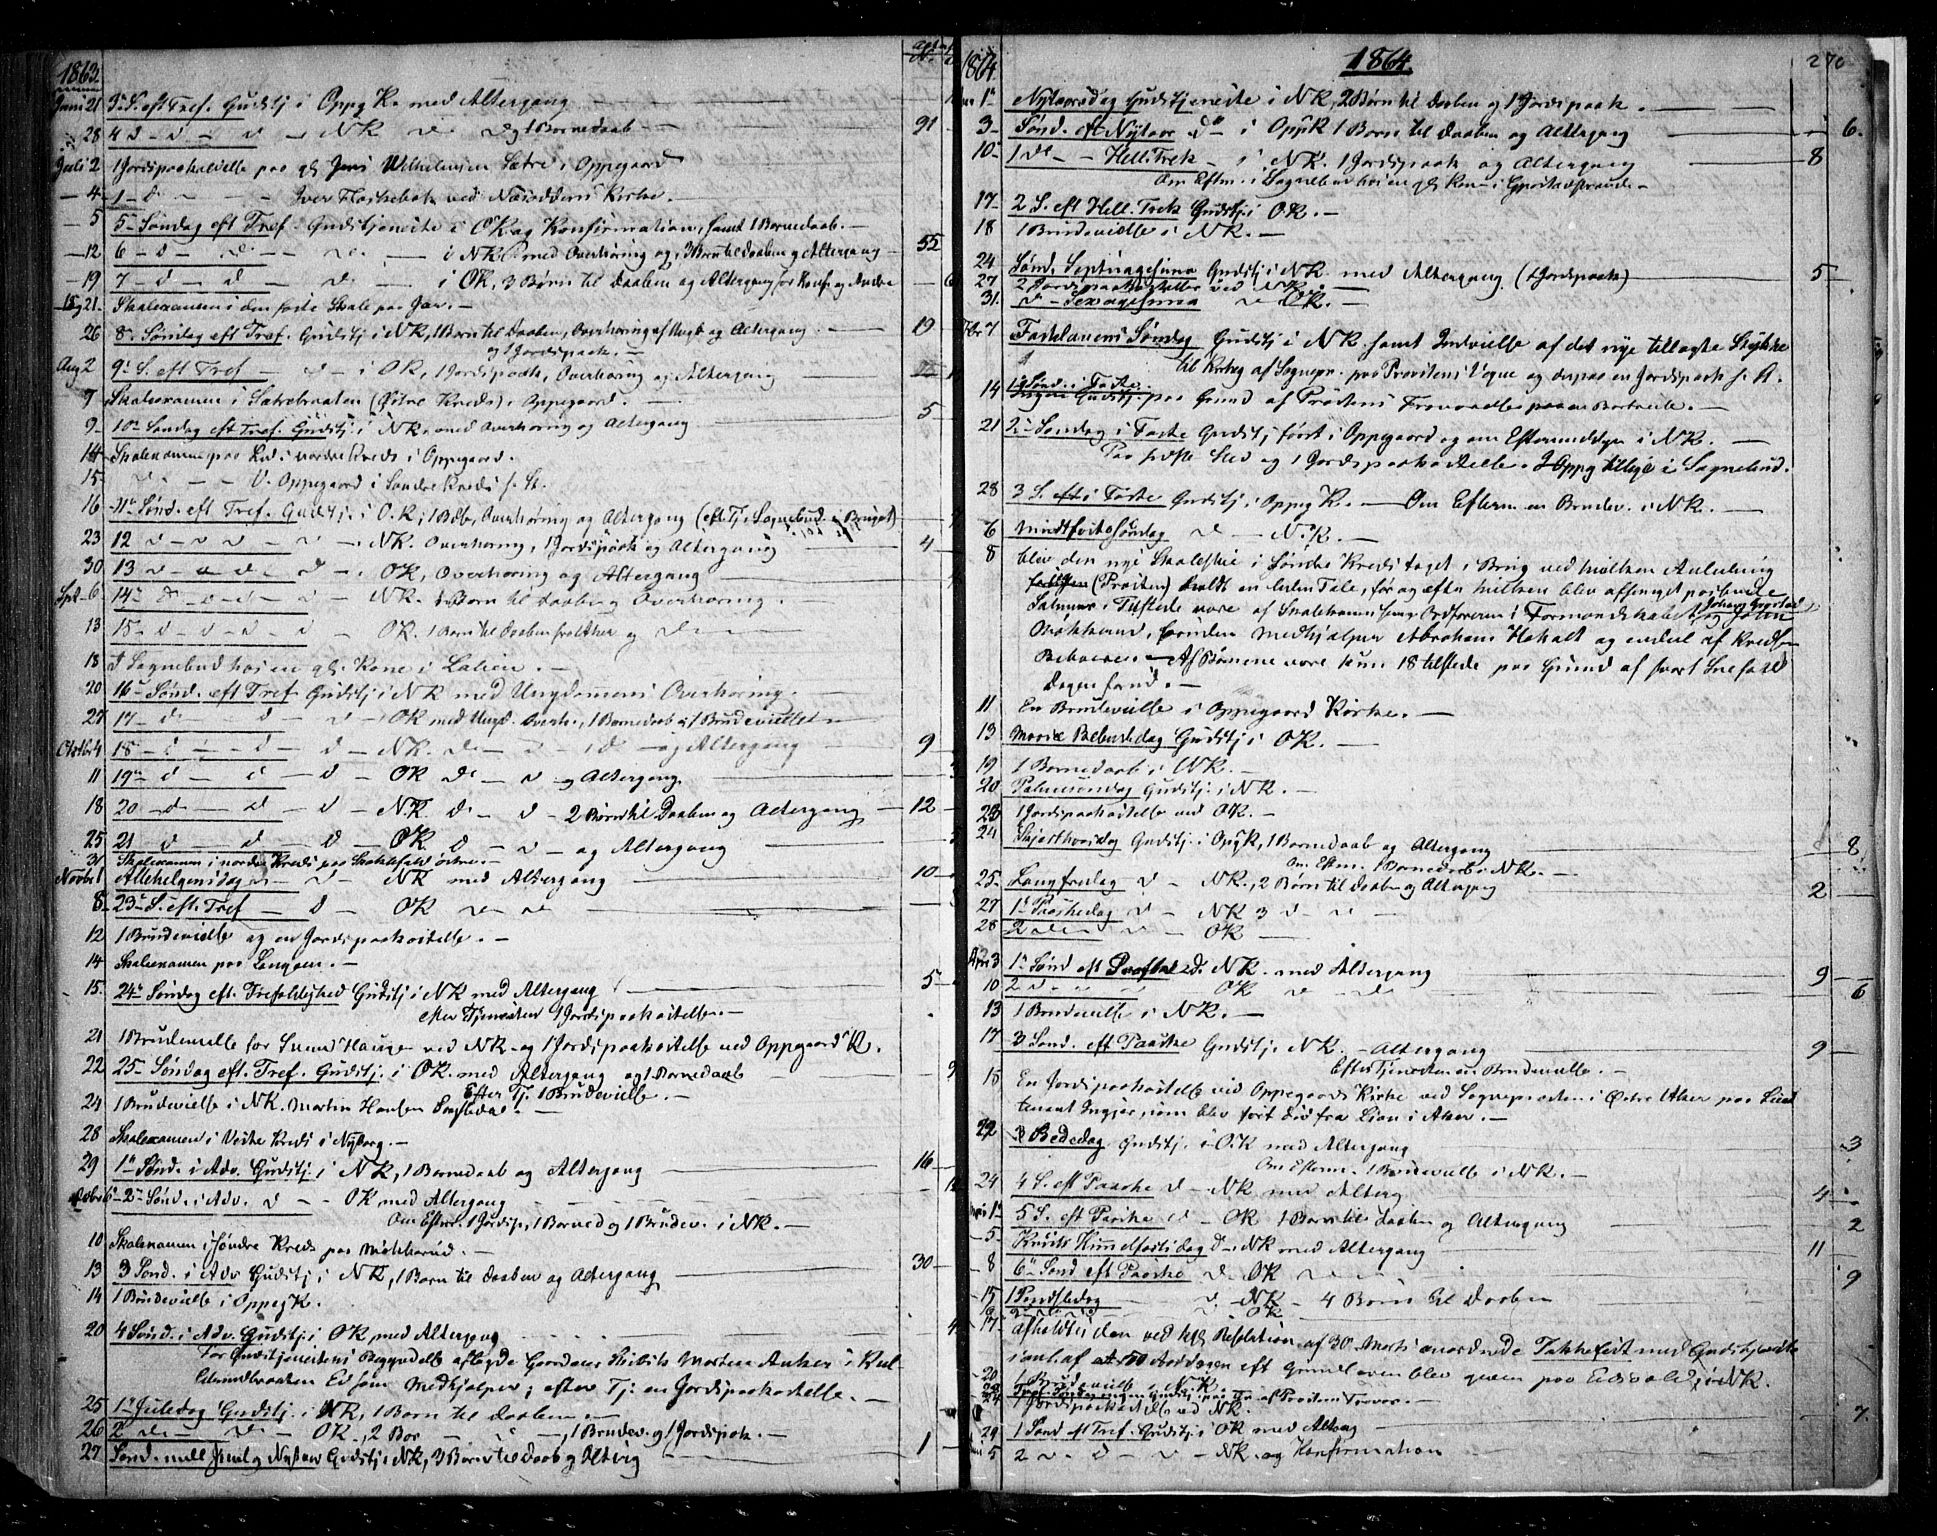 1863.
Juni 21 3. S. eft Tref. Gudstj. i Oppeg K. med Altergang
28 4 d - d - d - NK d - og 1 Barnedaab - 91
Juli 2 1 Jordspaakastelse paa gl. Jens Wilhelmsen Sætre i Oppegaard
- 4 1 - d - Iver Flaskebæk ved Næsoddens Kirke. -
- 5 5 Søndag eft Tref. Gudstjeneste i OK og Konfirmation, samt 1 Barnedaab. -
- 12 6 - d - d - d - i NK med Overhøring og 3 Børn til Daaben og Altergang - 55
- 19 7 - d - d - d - i OK, 3 Børn til Daaben og Altergang for Konf. og Andre
21. Skoleexamen i den faste Skole paa Jaer. -
26 8. Søndag eft Tref. Gudstj. i NK, 1 Barn til Daaben, Overhøring af Ungd. og Altergang - 19
og 1 Jordspaak. -
Aug 2 9. S. eft Tref - d - i OK, 1 Jordspaak, Overhøring og Altergang
7 Skoleexamen i Sætrebraaten (Østre Kreds) i Oppegaard. -
9 - 10. Søndag eft Tref. Gudstj. i NK. med Overhøring og Altergang - 5
14 Skoleexamen paa Rud i nordre Kreds i Oppegaard.
15 - d - - V. Oppegaard i Søndre Kreds
16 11. Sønd. eft Tref. Gudstj. i O.K, 1 Bdb, Overhøring og Altergang (eft. Tj. Sognebud
23 12 d - d - d - d - NK. Overhøring, 1 Jordspaak og Altergang - 4
30 13 - d - d - d - OK, Overhøring og Altergang -
Spt. 6 14 - d - d - d - NK. Børn til Daab og Overhøring. -
13 15 - d - d - d - OK. 1 Barn til Daaben fra Aker og d -
18 I Sognebud hos en gl. Kone i
20 16. Sønd. eft Tref Gudstj. i NK med Ungdomens Overhøring. -
27 17 - d - d - d - OK med Ungd. Overh., 1 Barnedaab og 1 Brudevielse -
Oktbr 4 18 - d - d - d - NK. d - d - 1 d - og Altergang 9
11 19 - d - d - d - OK d - d - og Altergang
18 20 - d - d - d - NK d - d - 2 Børn til Daaben og Altergang - 12
25 21 d - d - d OK d - d - og Altergang
31 Skoleexamen i nordre Kreds paa
Novbr 1 Allehelgensdag - d - NK med Altergang - 10
8 - 23. S. eft. Tref - d - OK d - d -
12 1 Brudevielse og en Jordspaakastelse. -
14 Skoleexamen paa Langøen. -
15. 24. Søndag eft. Trefoldighed Gudstj. i NK med Altergang - 5
efter Tjenesten 1 Jordspaakastelse. -
21 1 Brudevielse for Svend Hauger ved NK og 1 Jordspaakastelse ved Oppegaard K.
22 25 - Søndag eft. Tref. Gudstj. i OK. med Altergang og 1 Barnedaab
Efter Tj. 1 Brudevielse. -
24 1 Brudevielse i NK. Martin Hansen
28 Skoleexamen i Vestre Kreds i Nyborg. -
29 1. Sønd. i Adv. Gudstj. i NK, 1 Barnedaab og Altergang - 16
Decbr 6 - 2. Sønd. i Adv. d - - OK med Altergang
Om Efterm. 1 Jordsp., 1 Barned og 1 Brudev. i NK. -
10 Skoleexamen i søndre Kreds paa Mökkerud. -
13 3 Sønd. i Adv Gudstj. i NK, 1 Barn til Daaben og Altergang - 30
14 1 Brudevielse i Oppeg K.
20 4 Sønd. i Adv. Gudstj. i OK med Altergang
For Gudstjenestens Begyndelse aflagde Morten Anker i
Ed som Medhjælper; efter Tj. en Jordspaakastelse. -
25 1. Juledag Gudstj. i NK, 1 Barn til Daaben. -
26 2 d - d - OK., 2 Bør - d -, 1 Brudev. og 1 Jordspak. -
27 Sønd. mell Juul og Nytaar Gudstj. i NK, 3 Børn til Daab og Altrg - 1
1864
1864. 270
1. Nytaarsdag Gudstjeneste i NK, 2 Børn til Daaben og 1 Jordspaak. -
3 - Sønd. eft Nytaar d - i OppK 1 Barn til Daaben og Altergang - 6.
10 - 1 d - - Hell. Trek. - i NK. 1 Jordspaak og Altergang - 8
Om Efterm. i Sognebud hos en gl. Kone i
17 - 2 S. eft Hell. Trek Gudstj. i OK. -
18 1 Brudevielse i NK. -
24 Sønd. Septuagesima Gudstj. i NK. med Altergang (1 Jordspaak) - 5
27 2 Jordspaakastelser ved NK. -
31. - d - Sexagesima d - OK. -
Fbr 7 Fastelavens Søndag Gudstj. i NK samt Indvielse af det nye tillagte Stykke
til Kirkeg af Sognepr. paa Provstens Vegne og derpaa en Jordspaak
14 1. Sønd. i Faste. Ingen Gudstj. paa Grund af Præstens Fraværelse paa en Bortreise. -
21 2. Søndag i Faste Gudstj. først i Oppegaard og om Eftermiddagen i NK. -
Paa første Sted og 1 Jordspaakastelse. I Oppg tillige i Sognebud.
28 3 S. i Faste Gudstj. i Oppeg K. - Om Efterm. en Brudev. i NK. -
6 Midtfastesøndag d - N.K. -
8 blev den nye Skolestue i Søndre Kreds taget i Brug ved hvilken Anledning
(Præsten) holdt en liden Tale, før og efter hvilken blev afsunget passende
Salmer. Tilstede vare af Skolekommissionen Ordføreren i Formandskabet og John
Mökkerud, foruden Medhjælper Abraham Hokalt og endel af Kredsens
Beboere. - Af Børnene vare kun 18 tilstede paa Grund af svart Snefald
Dagen forud. -
11 En Brudevielse i Oppegaard Kirke. -
13 Mariæ Bebudelsedag Gudstj. i OK. -
19 1 Barnedaab i NK. -
20 Palmesøndag Gudstj. i NK. -
23 1 Jordspaakastelse ved OK. -
24 Skjærthorsdag Gudstj. i OppK, 1 Barnedaab og Altergang - 8
Om Efterm. 1 Barnedaab i NK. -
25 - Langfredag d - NK., 2 Børn til Daab og Altergang 2
27 1. Paaskedag d - NK 3 d - d -
28 2 d - d - OK -
Apr 3 1. Sønd eft Paaske d. NK. med Altergang 9
10 2 d - d - d OK d - d - 6
13 1 Brudevielse i NK. -
17 3 Sønd. eft Paaske Gudstj. NK. - Altergang 9 -
Efter Tjenesten en Brudevielse. -
18 En Jordspaakastelse ved Oppegaards Kirke ved Sognepræsten i Østre Aker paa Lieu
tenant Ingier, som blev ført did fra Lian i Aker. -
22 3 Bededag Gudstj. i OK med Altergang 3
Om Efterm. 1 Brudevielse i NK. -
24 4 S. eft Paaske d - NK med Alterg 4 -
Mai 1. 5 S. eft Paaske d - OK 1 Barn til Daaben og Altergang 2
- 5 - Kristi Himmelfartsdag d - NK med Altergang - 11 -
- 8 6. Sønd eft Paaske d OK d - 9
- 15 1 Pindsedag d NK - 4 Børn til Daaben
16 2 d - d - d. OK -
- 17 - afholdtes den ved kgl Resolution af 30 Marts anordnede Takkefest med Gudstjeneste
i anl. af at 50 Aarsdagen eft Grundloven blev given paa Eidsvold, i NK.
- 20 1 Brudevielse i NK.
22 Tref. Søndag ingen Gudstj. paa Gr. af Præstens Fravær. -
24 1 Jordspaakastelse ved NK. -
29 1 Sønd eft Tref. Gudstj. i OK med Altrg - 7.
5 2 d - d - d - NK. og Konfirmation